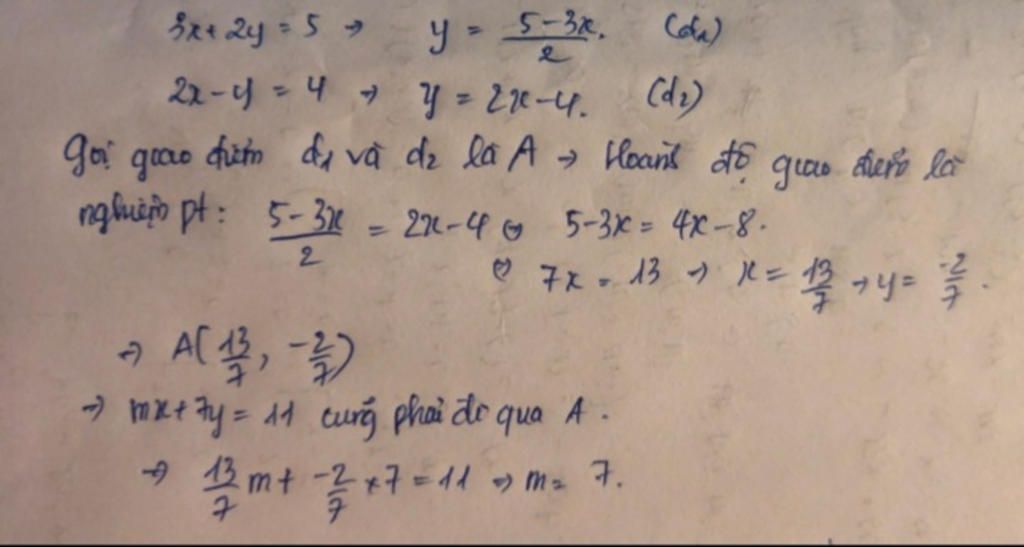 3x+2y = 5 → y = (5-3x)/2. (d₁)
2x-y = 4 → y = 2x-4. (d₂)
Gọi giao điểm d₁ và d₂ là A → Hoành độ giao điểm là
nghiệm pt: (5-3x)/2 = 2x-4 ⇔ 5-3x = 4x-8.
⇔ 7x = 13 → x = 13/7 → y = -2/7.
→ A(13/7, -2/7)
→ mx+7y = 11 cũng phải đi qua A.
→ 13/7 m + -2/7 × 7 = 11 → m = 7.